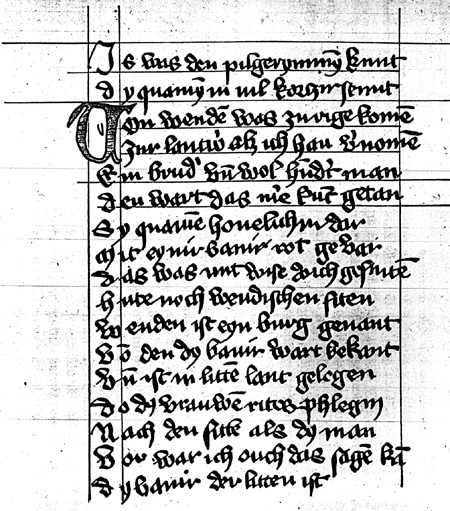 Is was den pilgerynnyn kunt
dy quamyn in vil korczir stunt
Von wendē was zu rige komē
Zur lantwˀ als ich han vˀnomē
Ein brudˀ vn̄ wol hūdˀt man
den wart das mˀe kūt getan
Sy quamē houelichin dar
Mit eynir banir rot gevar
das was mit wise durch gesnitē
hute noch wendischen siten
Wenden ist eyn burg genant
Vō den dy banir wart bekant
Vn̄ ist in littē lant gelegen
do dy vrauwē ritēs phlegin
Nach den sittē als dy man
Vor war ich ouch das sagē kā
dy banir der litten ist